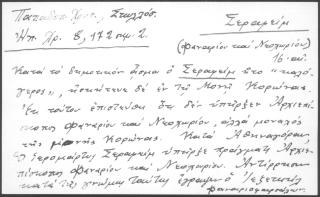 Παπαδοπ. Χρυσ., Σταλλός.
Ἠπ. Χρ. 8, 172 σημ. 2.
Σεραφείμ
(Φαναρίου καὶ Νεοχωρίου)
16 αἰ.
Κατὰ τὸ δημοτικὸν ᾆσμα ὁ Σεραφεὶμ ἦτο "καλό-
γερος", ἀσκητεύσας δὲ ἐν τῇ Μονῇ Κορώνας.
Ἐκ τούτου ἐπιστεύθη ὅτι δὲν ὑπῆρξεν Ἀρχιεπί-
σκοπος Φαναρίου καὶ Νεοχωρίου, ἀλλὰ μοναχὸς
τῆς μονῆς Κορώνας. Κατὰ Ἀθηναγόραν
ὁ ἱερομάρτυς Σεραφεὶμ ὑπῆρξε πράγματι Ἀρχιε-
πίσκοπος Φαναρίου καὶ Νεοχωρίου. Ἀντίρρησιν
κατὰ τῆς γνώμης ταύτης ἔγραψεν ὁ